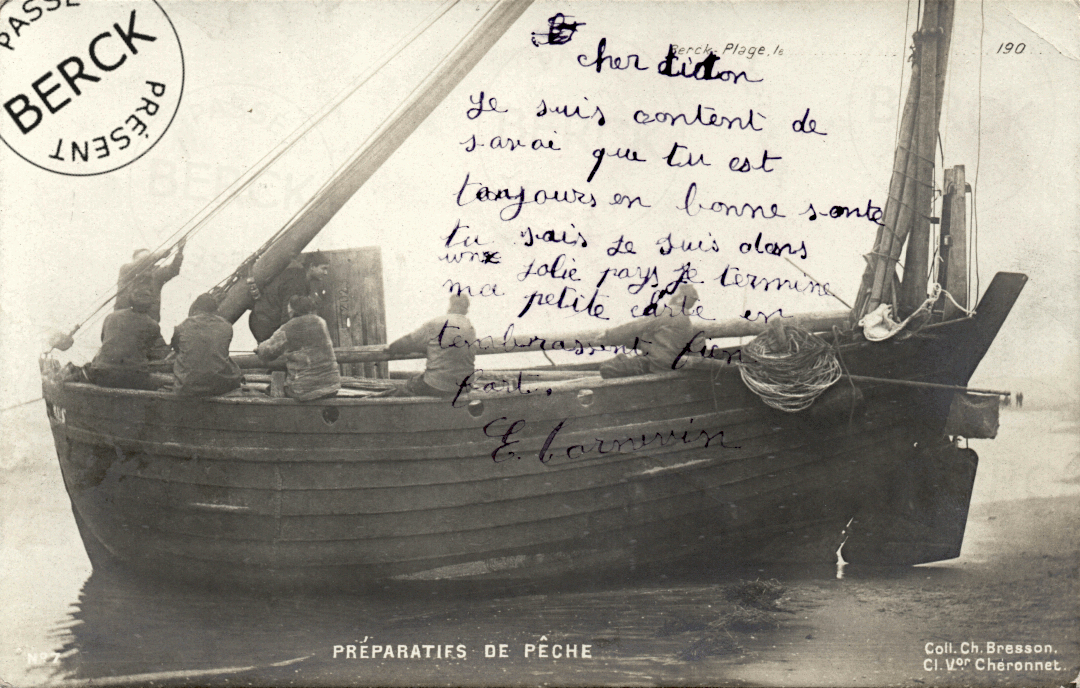 PASSÉ
BERCK
PRÉSENT
Berck-Plage, le 190
cher didon
Je suis content de
savoi que tu est
toujours en bonne sante
tu sais je suis dans
une jolie pays je termine
ma petite carte en
tembrassent fien
fort.
E. Carnevin
N° 7
PRÉPARATIFS DE PÊCHE
Coll. Ch. Bresson.
Cl. Vor Chéronnet.